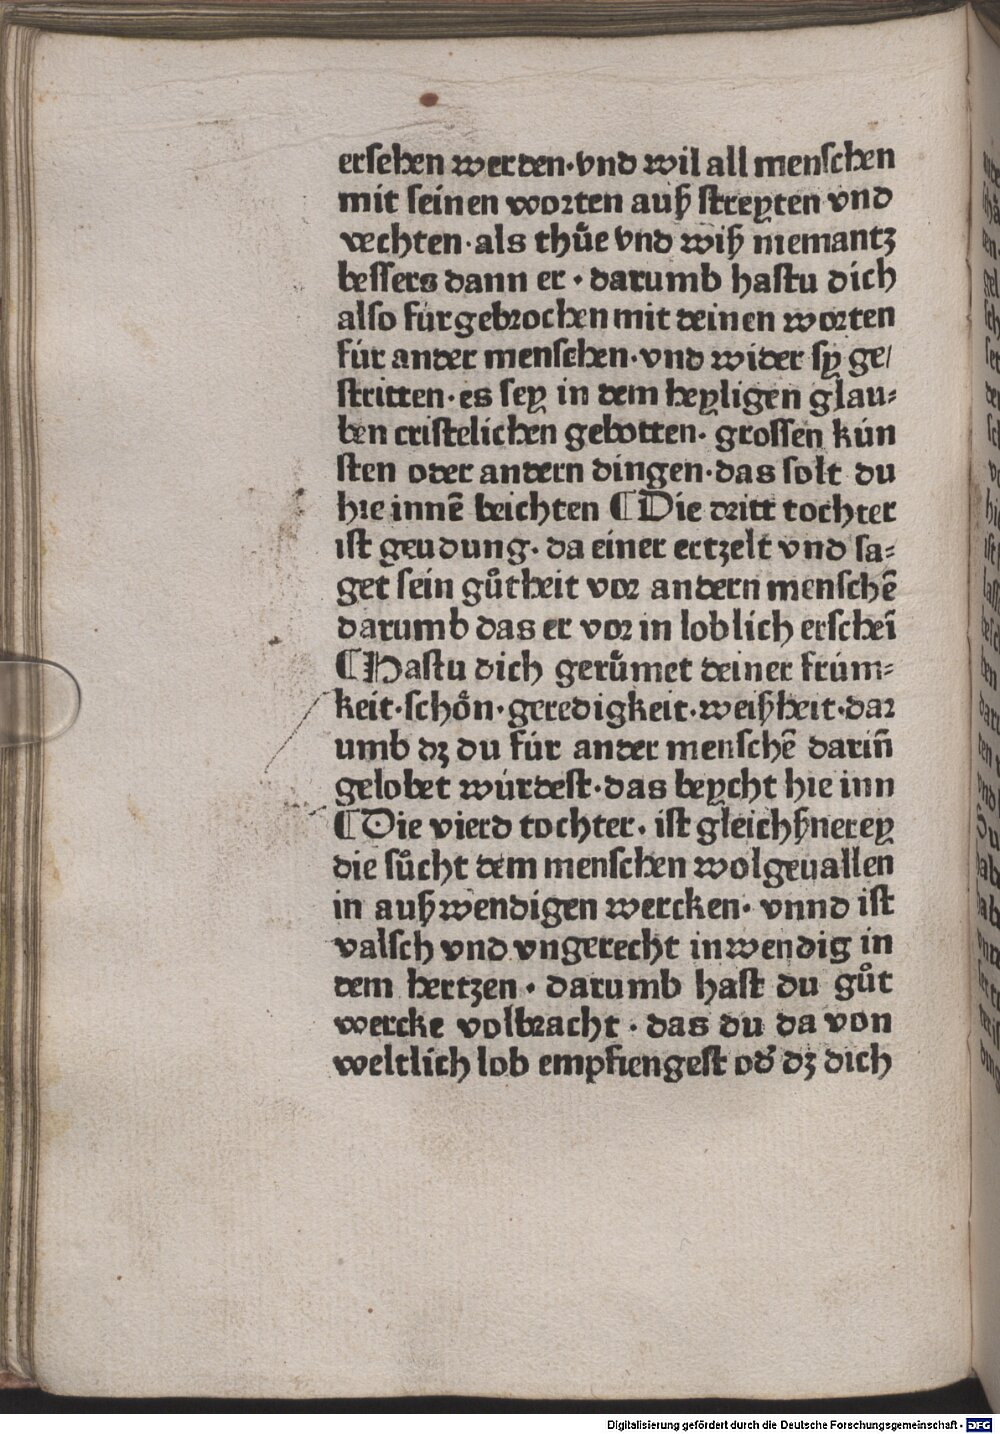 erſehen werden·vnd wil all menſchen
mit ſeinen worten auß ſtreyten vnd
vechten·als thuͤe vnd wiß niemantz
beſſers dann er·darumb haſtu dich
alſo fúrgebrochen mit deinen worten
fúr ander menſchen·vnd wider ſy ge/
ſtritten·es ſey in dem heyligen glau⸗
ben criſtelichen gebotten·groſſen kún
ſten oder andern dingen·das ſolt du
hie innē beichten ¶Die dritt tochter
iſt geudung·da einer ertzelt vnd ſa⸗
get ſein guͦtheit vor andern menſchē
darumb das er vor in loblich erſcheī
¶Haſtu dich geruͤmet deiner frúm⸗
keit·ſchoͤn·geredigkeit·weißheit·dar
umb dꝫ du fúr ander menſchē darin̄
gelobet wúrdeſt·das beycht hie inn
¶Die vierd tochter·iſt gleichßnerey
die ſuͦcht dem menſchen wolgeuallen
in außwendigen wercken·vnnd iſt
valſch vnd vngerecht inwendig in
dem hertzen·darumb haſt du guͦt
wercke volbracht·das du da von
weltlich lob empfiengeſt od' dꝫ dich
Digitalisierung gefördert durch die Deutsche Forschungsgemeinschaft - DFG